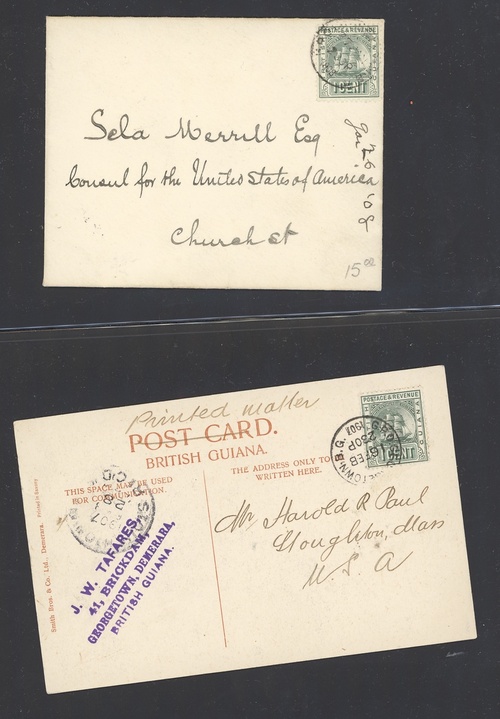 POSTAGE & REVENUE
1 CENT
Sela Merrill Esq
Consul for the United States of America
Church st
15⁰⁰
Printed matter
POST CARD.
BRITISH GUIANA.
THIS SPACE MAY BE USED
FOR COMMUNICATION.
THE ADDRESS ONLY TO
WRITTEN HERE.
POSTAGE & REVENUE
GEORGETOWN B.G.
16 FEB
230P
Mr Harold R Paul
Stoughton, Mass
U. S. A
J. W. TAFARES,
41, BRICKDAM,
GEORGETOWN, DEMERARA,
BRITISH GUIANA.
Smith Bros. & Co. Ltd., Demerara.